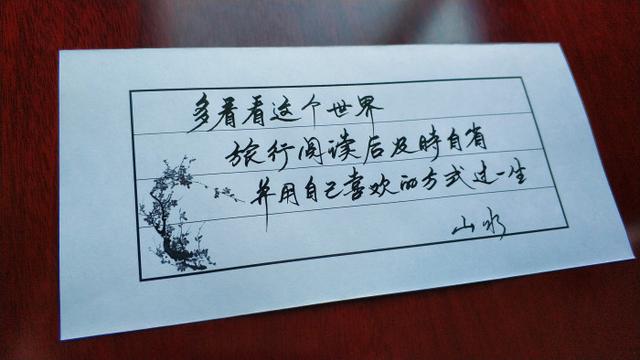 多看看这个世界
旅行阅读后及時自省
并用自己喜欢的方式过一生
山水